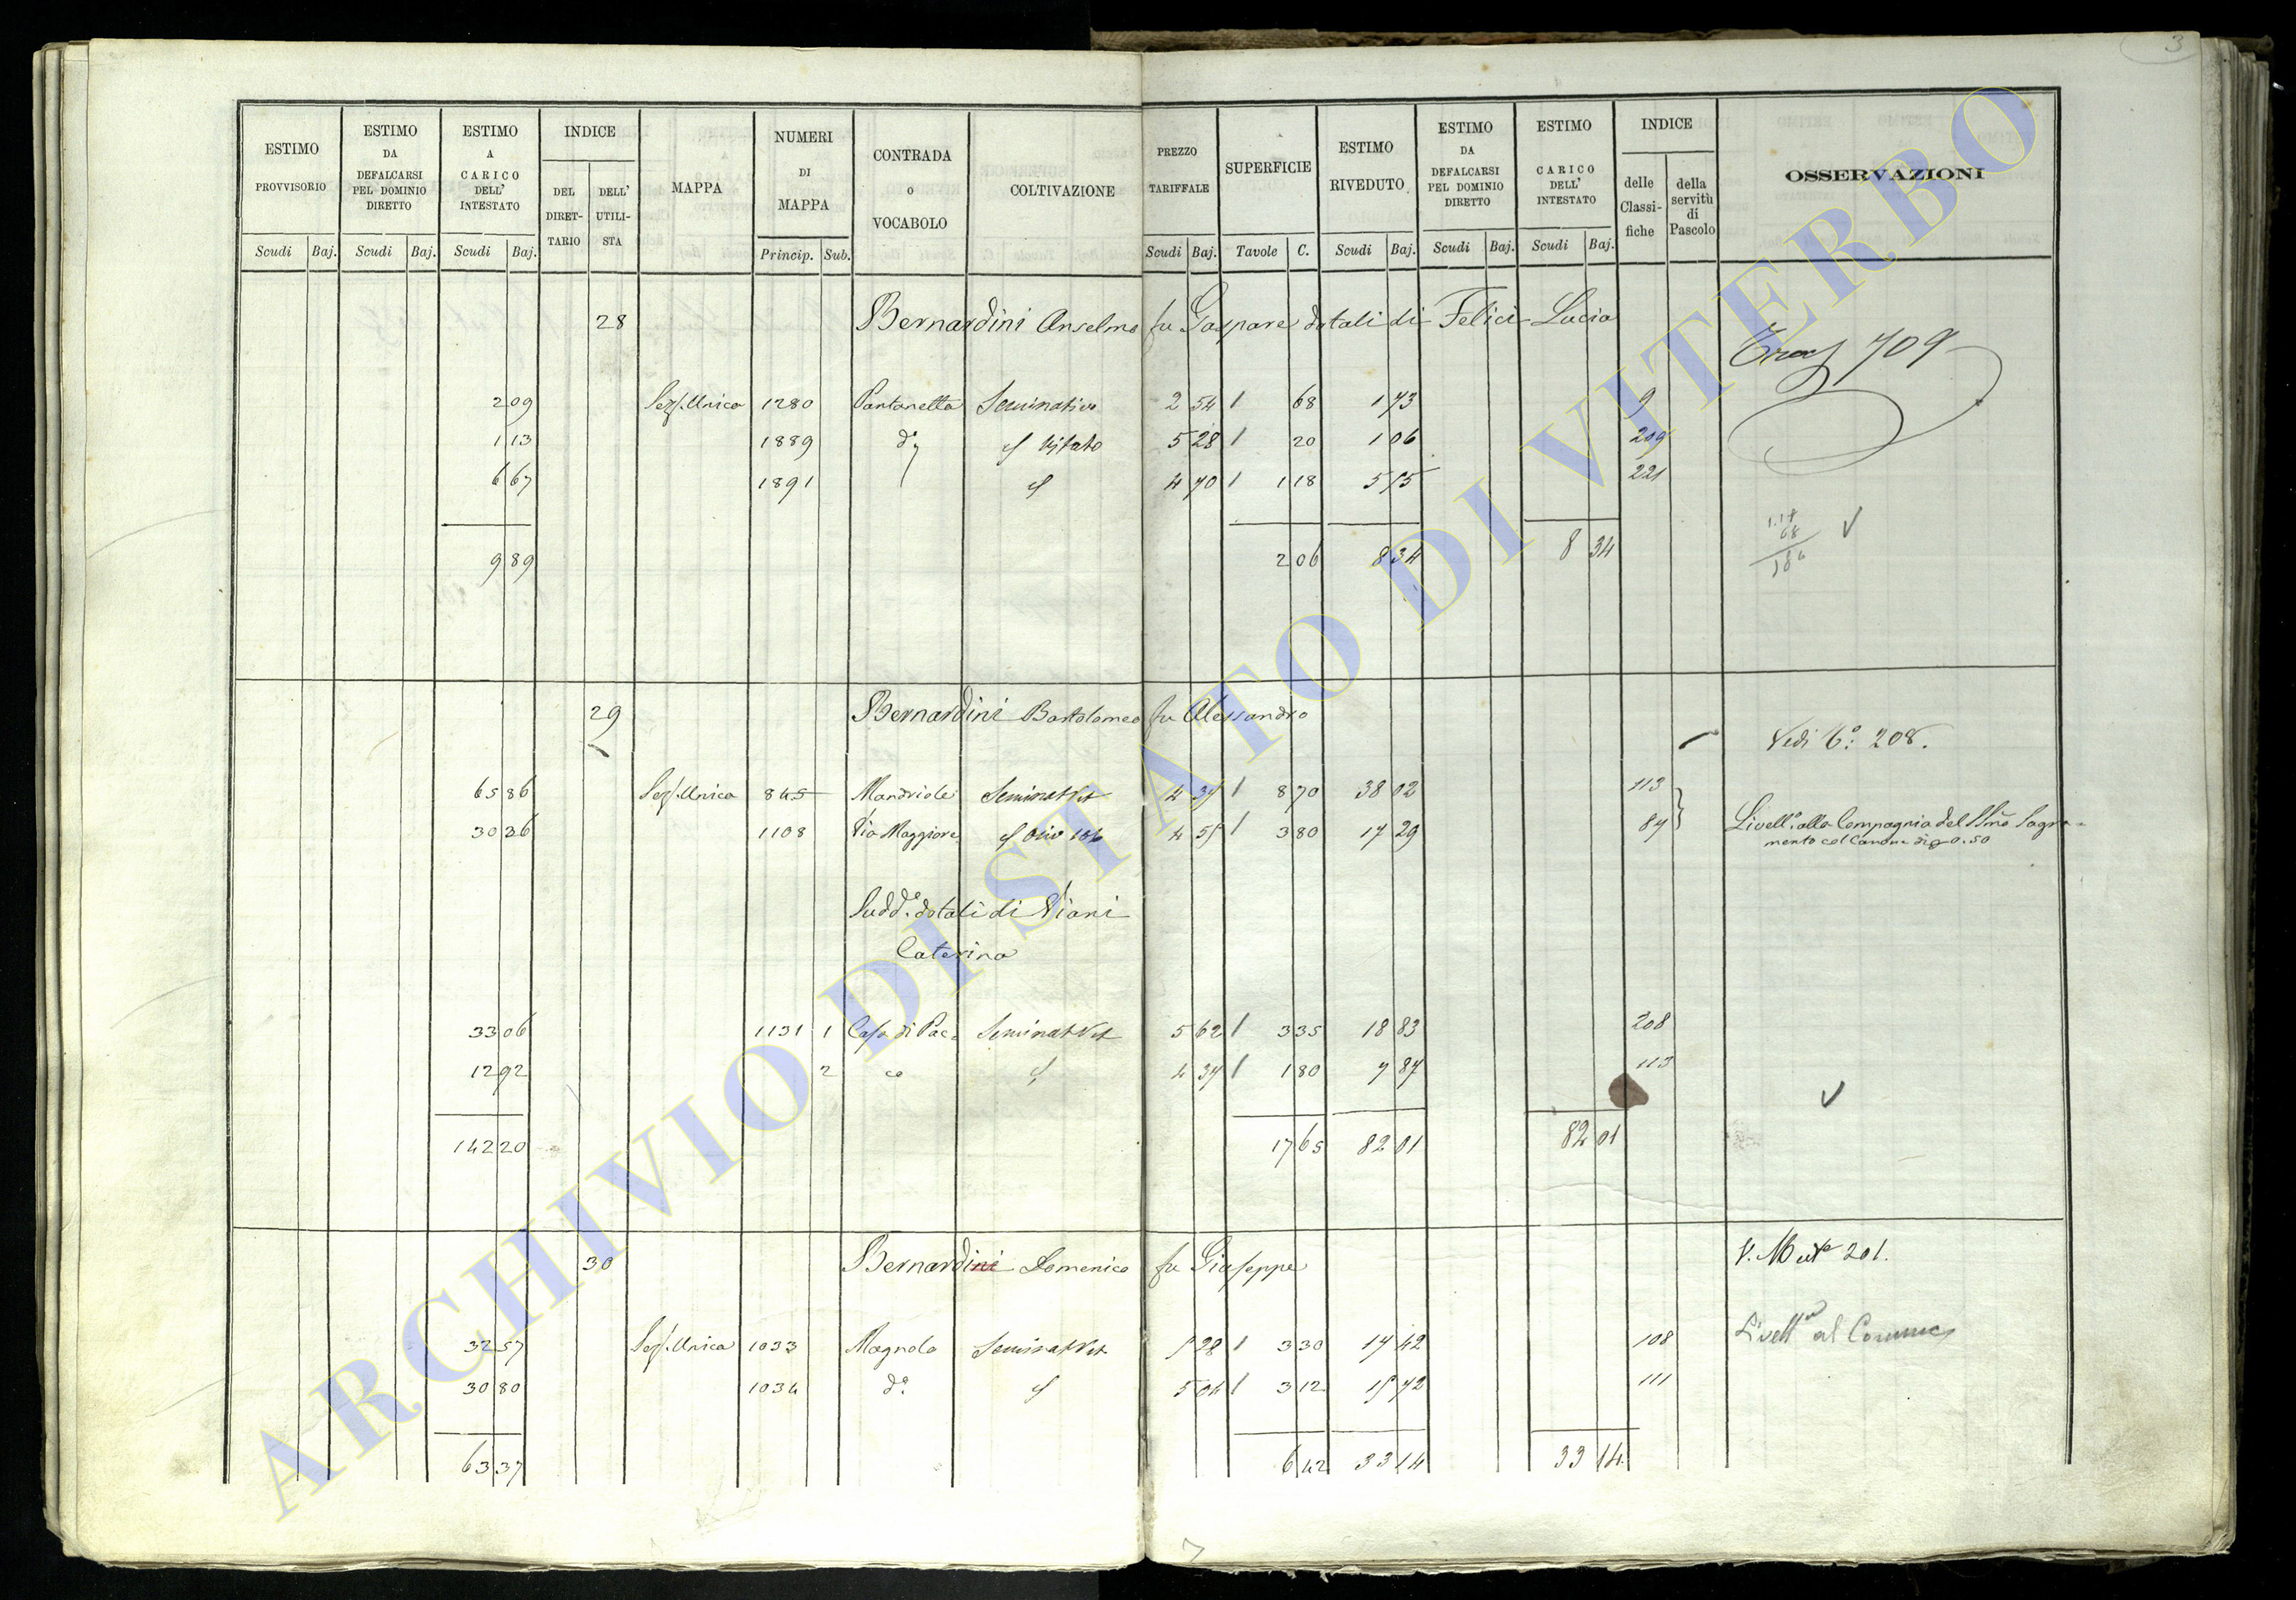 3
ESTIMO PROVVISORIO
ESTIMO DA DEFALCARSI PEL DOMINIO DIRETTO
ESTIMO A CARICO DELL' INTESTATO
INDICE
DEL DIRETTARIO
DELL' UTILISTA
MAPPA
NUMERI DI MAPPA
CONTRADA O VOCABOLO
COLTIVAZIONE
PREZZO TARIFFALE
SUPERFICIE
ESTIMO RIVEDUTO
ESTIMO DA DEFALCARSI PEL DOMINIO DIRETTO
ESTIMO CARICO DELL' INTESTATO
INDICE
delle Classifiche
della servitù di Pascolo
OSSERVAZIONI
Scudi Baj. Scudi Baj. Scudi Baj. Princip. Sub. Scudi Baj. Tavole C. Scudi Baj. Scudi Baj. Scudi Baj.
28 Bernardini Anselmo fu Gaspare dotali di Felici Lucia
709
2 09 Sez. Unica 1280 Pantanella Seminativo 2 54 1 68 1 73 9
1 13 1889 do Vitato 5 28 1 20 1 06 209
6 67 1891 4 70 1 1 18 5 55 221
9 89 2 06 8 34 8 34
1.18
68
186
29 Bernardini Bartolomeo fu Alessandro
Vedi 208.
65 86 Sez. Unica 845 Mandriole Seminat Vit 4 37 1 8 70 38 02 113
30 36 1108 Via Maggiore 4 55 1 3 80 17 29 87 Livell. alla Compagnia del SSmo Sagra-
mento col Canone di 0.50
Sudd. dotali di Viani
Caterina
33 06 1131 1 Casa di Pace Seminat Vit 5 62 1 3 35 18 83 208
12 92 2 4 37 1 1 80 7 87 113
142 20 17 65 82 01 82 01
30 Bernardini Domenico fu Giuseppe
V. Mut 201.
32 57 Sez. Unica 1033 Magnola Seminat Vit 5 28 1 3 30 17 42 108 Livell al Comune
30 80 1034 do 5 04 1 3 12 15 72 111
63 37 6 42 33 14 33 14
ARCHIVIO DI STATO DI VITERBO